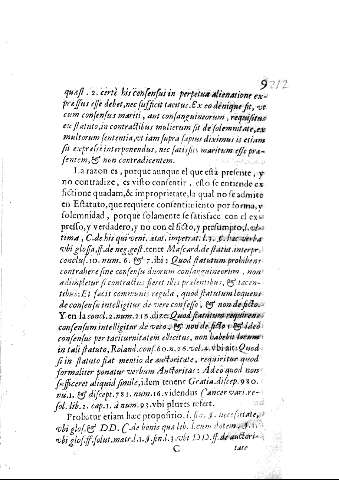 9 212
quæst. 2. certè his consensus in perpetua alienatione ex-
pressus esse debet, nec sufficit tacitus. Ex eo dēnique fit, vt
cum consensus mariti, aut consanguineorum, requisitus
ex statuto, in contractibus mulierum sit de solemnitate, ex
multorum sententia, vt iam supra sæpius diximus is etiam
sit expressè interponendus, nec satis sit maritum esse præ-
sentem, & non contradicentem.
La razon es, porque aunque el que està presente, y
no contradize, es visto consentir, esto se entiende ex
fictione quadam, & improprietate, la qual no se admite
en Estatuto, que requiere consentimiento por forma, y
solemnidad, porque solamente se satisface con el ex-
presso, y verdadero, y no con el ficto, y presumpto, l. vl-
tima, C. de his qui veni. ætat. impetrat. l. 3. §. hæc verba
vbi glossa, ff. de neg. gest. tenet Mascard. de statut. interpr.
conclus. 10. num. 6. & 7. ibi: Quod statutum prohibens
contrahere sine consensu duorum consanguineorum, non
adimpletur si contractus fieret illis præsentibus, & tacen-
tibus: Et facit communis regula, quod statutum loquens
de consensu intelligitur de vero consensu, & non de ficto.
Y en la concl. 2. num. 215. dize: Quod statutum requirens
consensum intelligitur de vero, & non de ficto: & ideo
consensus per taciturnitatem elicitus, non habebit locum
in tali statuto, Roland. cons. 80. n. 26. vol. 4. vbi ait: Quod
si in statuto fiat mentio de auctoritate, requiritur quod
formaliter ponatur verbum Auctoritas: Adeo quod non
sufficeret aliquid simile, idem tenent Gratia. discep. 980.
nu. 1. & discept. 781. num. 16. videndus Cancer vari. re-
sol. lib. 2. cap. 1. à num. 93. vbi plures refert.
Probatur etiam hæc propositio.
vbi glos. & DD. C. de bonis quæ lib.
C
tate